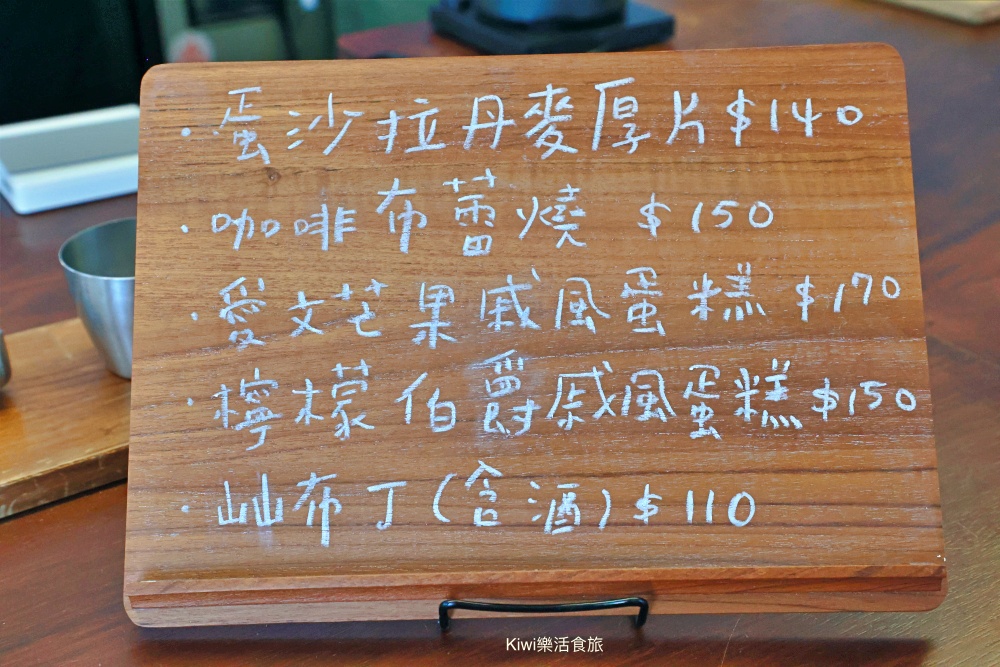 ·蛋沙拉丹麥厚片$140
·咖啡布蕾燒 $150
·愛文芒果戚風蛋糕 $170
·檸檬伯爵戚風蛋糕$150
·屾布丁(含酒)$110
Kiwi樂活食旅